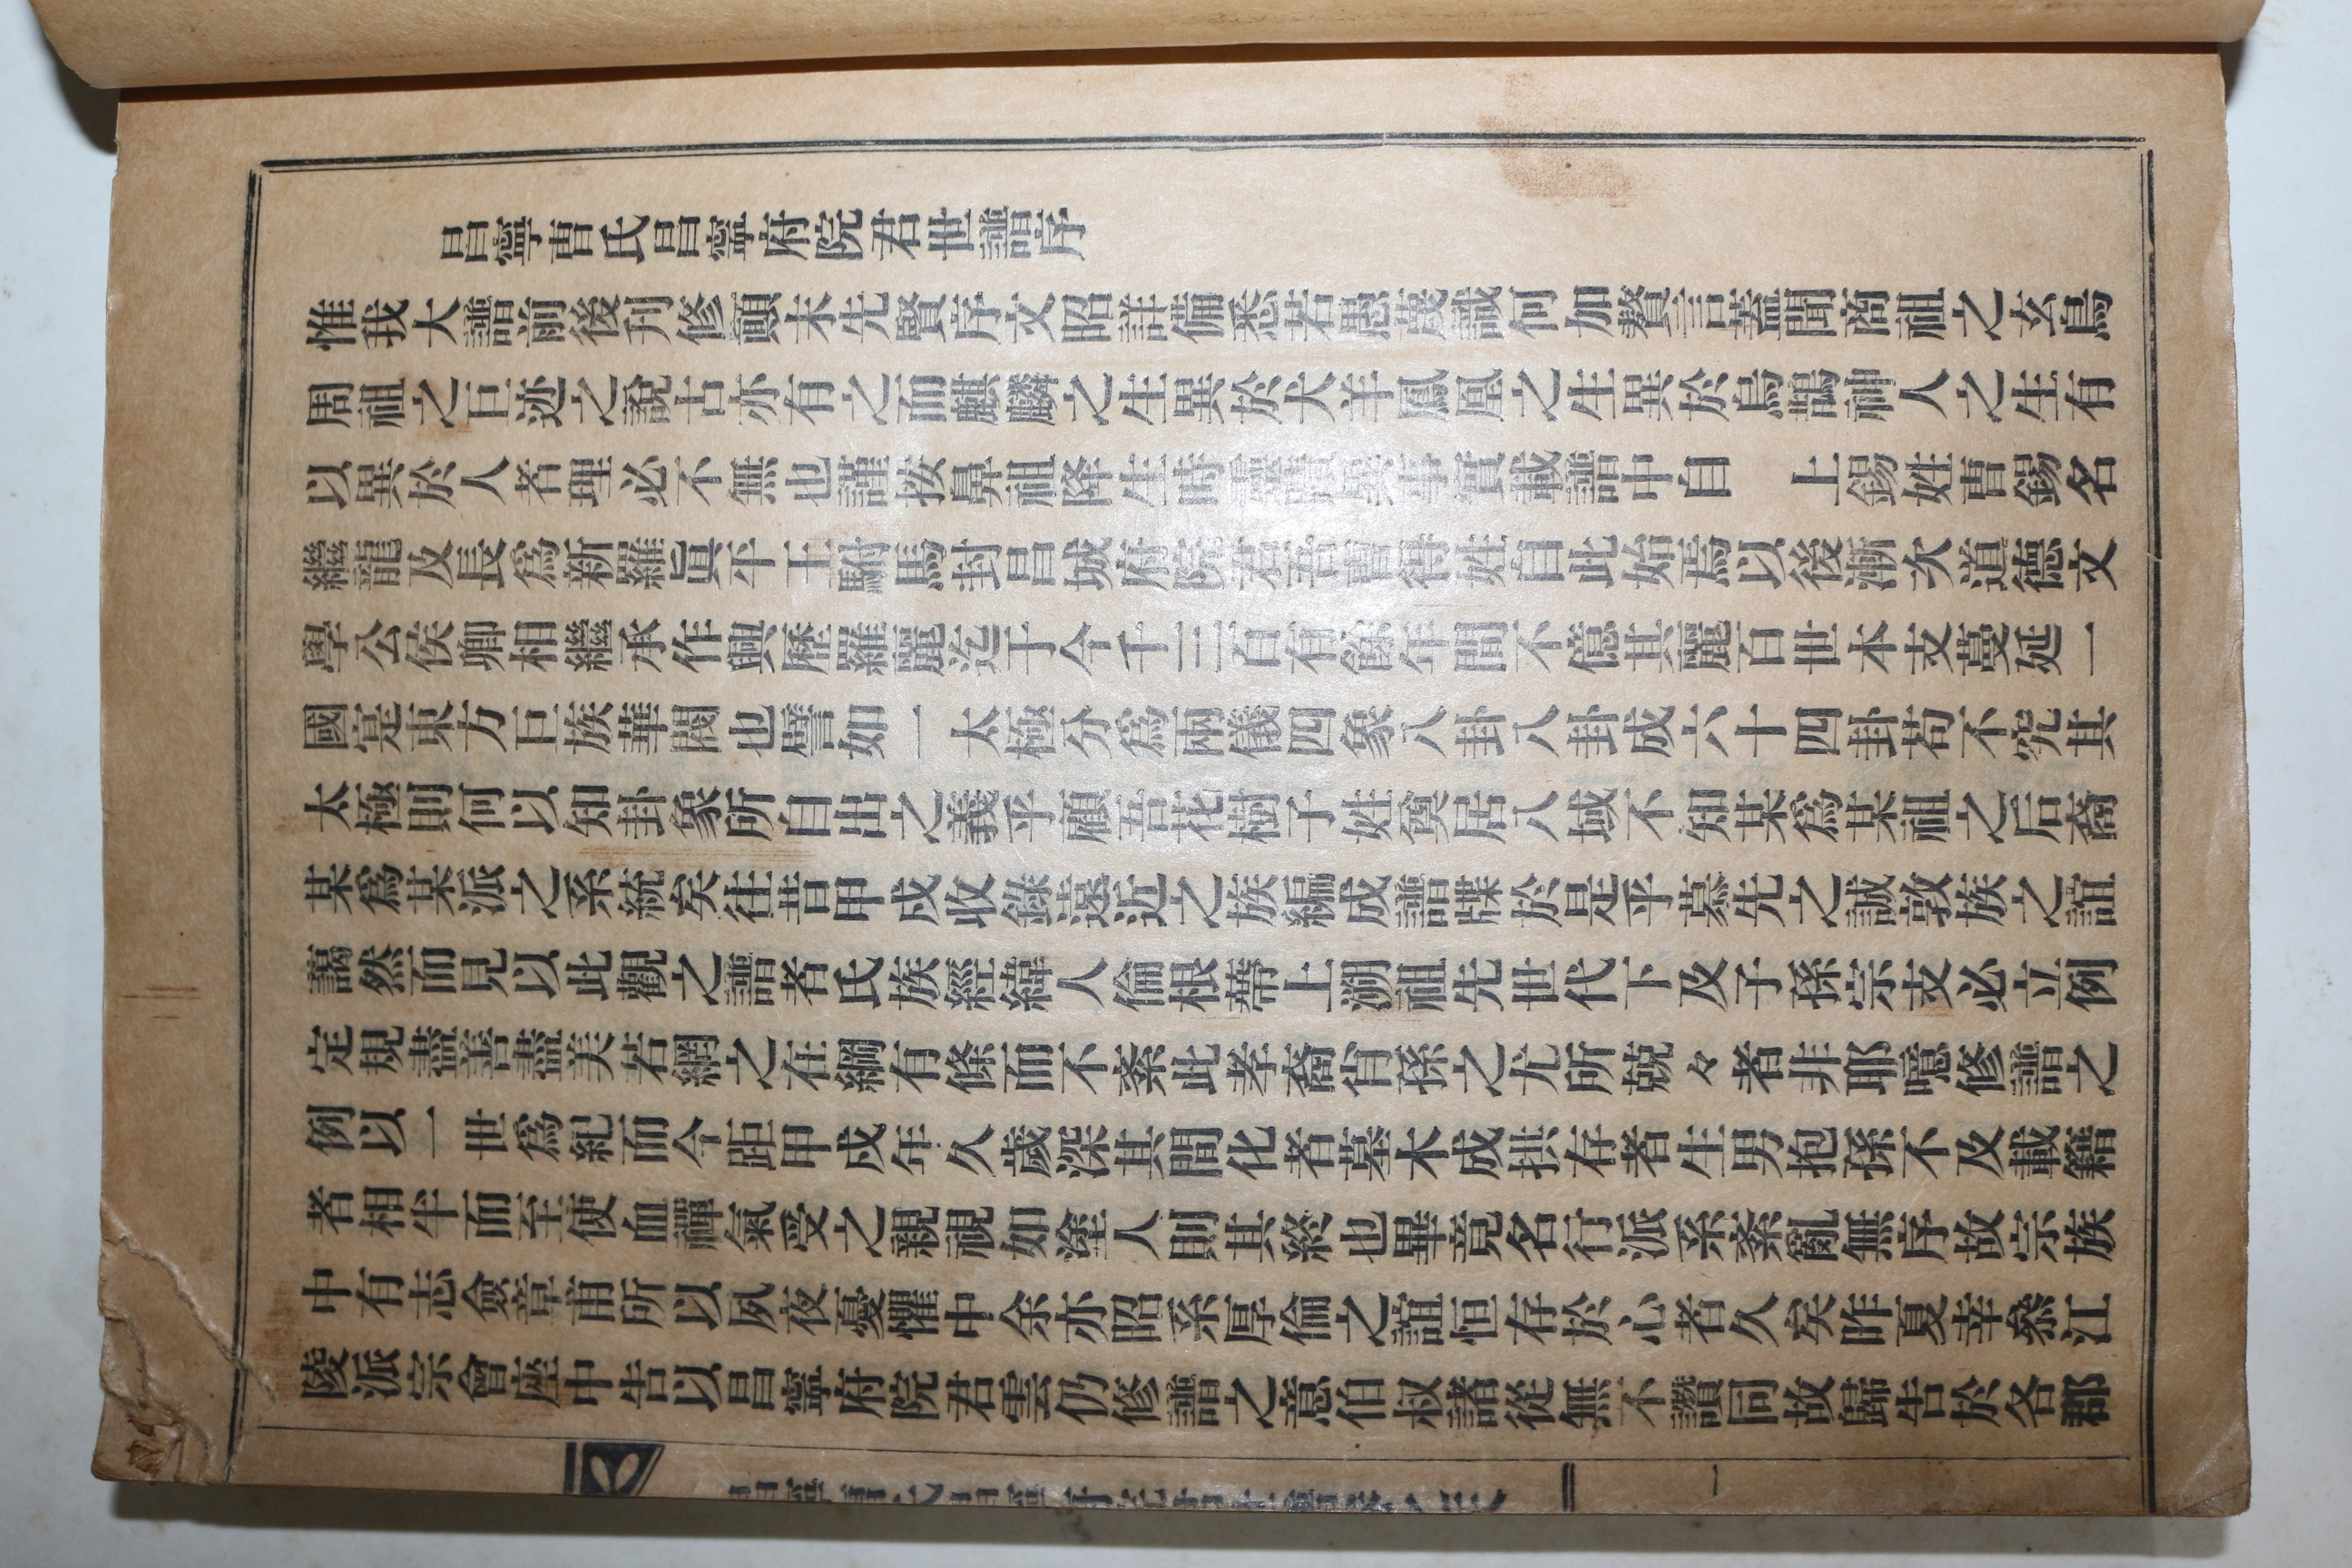 昌寧曺氏昌寧府院君世譜序
惟我大譜前後刋修顚末先賢序文昭詳備悉若愚蔑識何加贅言蓋聞商祖之玄鳥
周祖之巨迹之說古亦有之而麒麟之生異於犬羊鳳凰之生異於烏鵲神人之生有
以異於人者理必不無也謹按鼻祖降生時靈蹟異事實載譜中自　上錫姓曺錫名
繼龍及長爲新羅眞平王駙馬封昌城府院君吾曺得姓自此始焉以後漸次道德文
學公侯卿相繼承作興歷羅麗迄于今千三百有餘年間不億其麗百世本支蔓延一
國寔東方巨族華閥也譬如一太極分爲兩儀四象八卦八卦成六十四卦苟不究其
太極則何以知卦象所自出之義乎顧吾花樹子姓奠居八域不知某爲某祖之后裔
某爲某派之系統矣往昔甲戍收錄遠近之族編成譜牒於是乎慕先之誠敦族之誼
藹然而見以此觀之譜者氏族經緯人倫根蔕上溯祖先世代下及子孫宗支必立例
定規盡善盡美若網之在綱有條而不紊此孝裔肖孫之尤所兢々者非耶噫修譜之
例以一世爲紀而今距甲戍年久歲深其間化者墓木成拱存者生男抱孫不及載籍
者相半而至使血禪氣受之親視如塗人則其終也畢竟名行派系紊亂無序故宗族
中有志僉章甫所以夙夜憂懼中余亦昭系厚倫之誼恒存於心者久矣昨夏幸叅江
陵派宗會座中告以昌寧府院君雲仍修譜之意伯叔諸從無不讚同故歸告於各郡
一